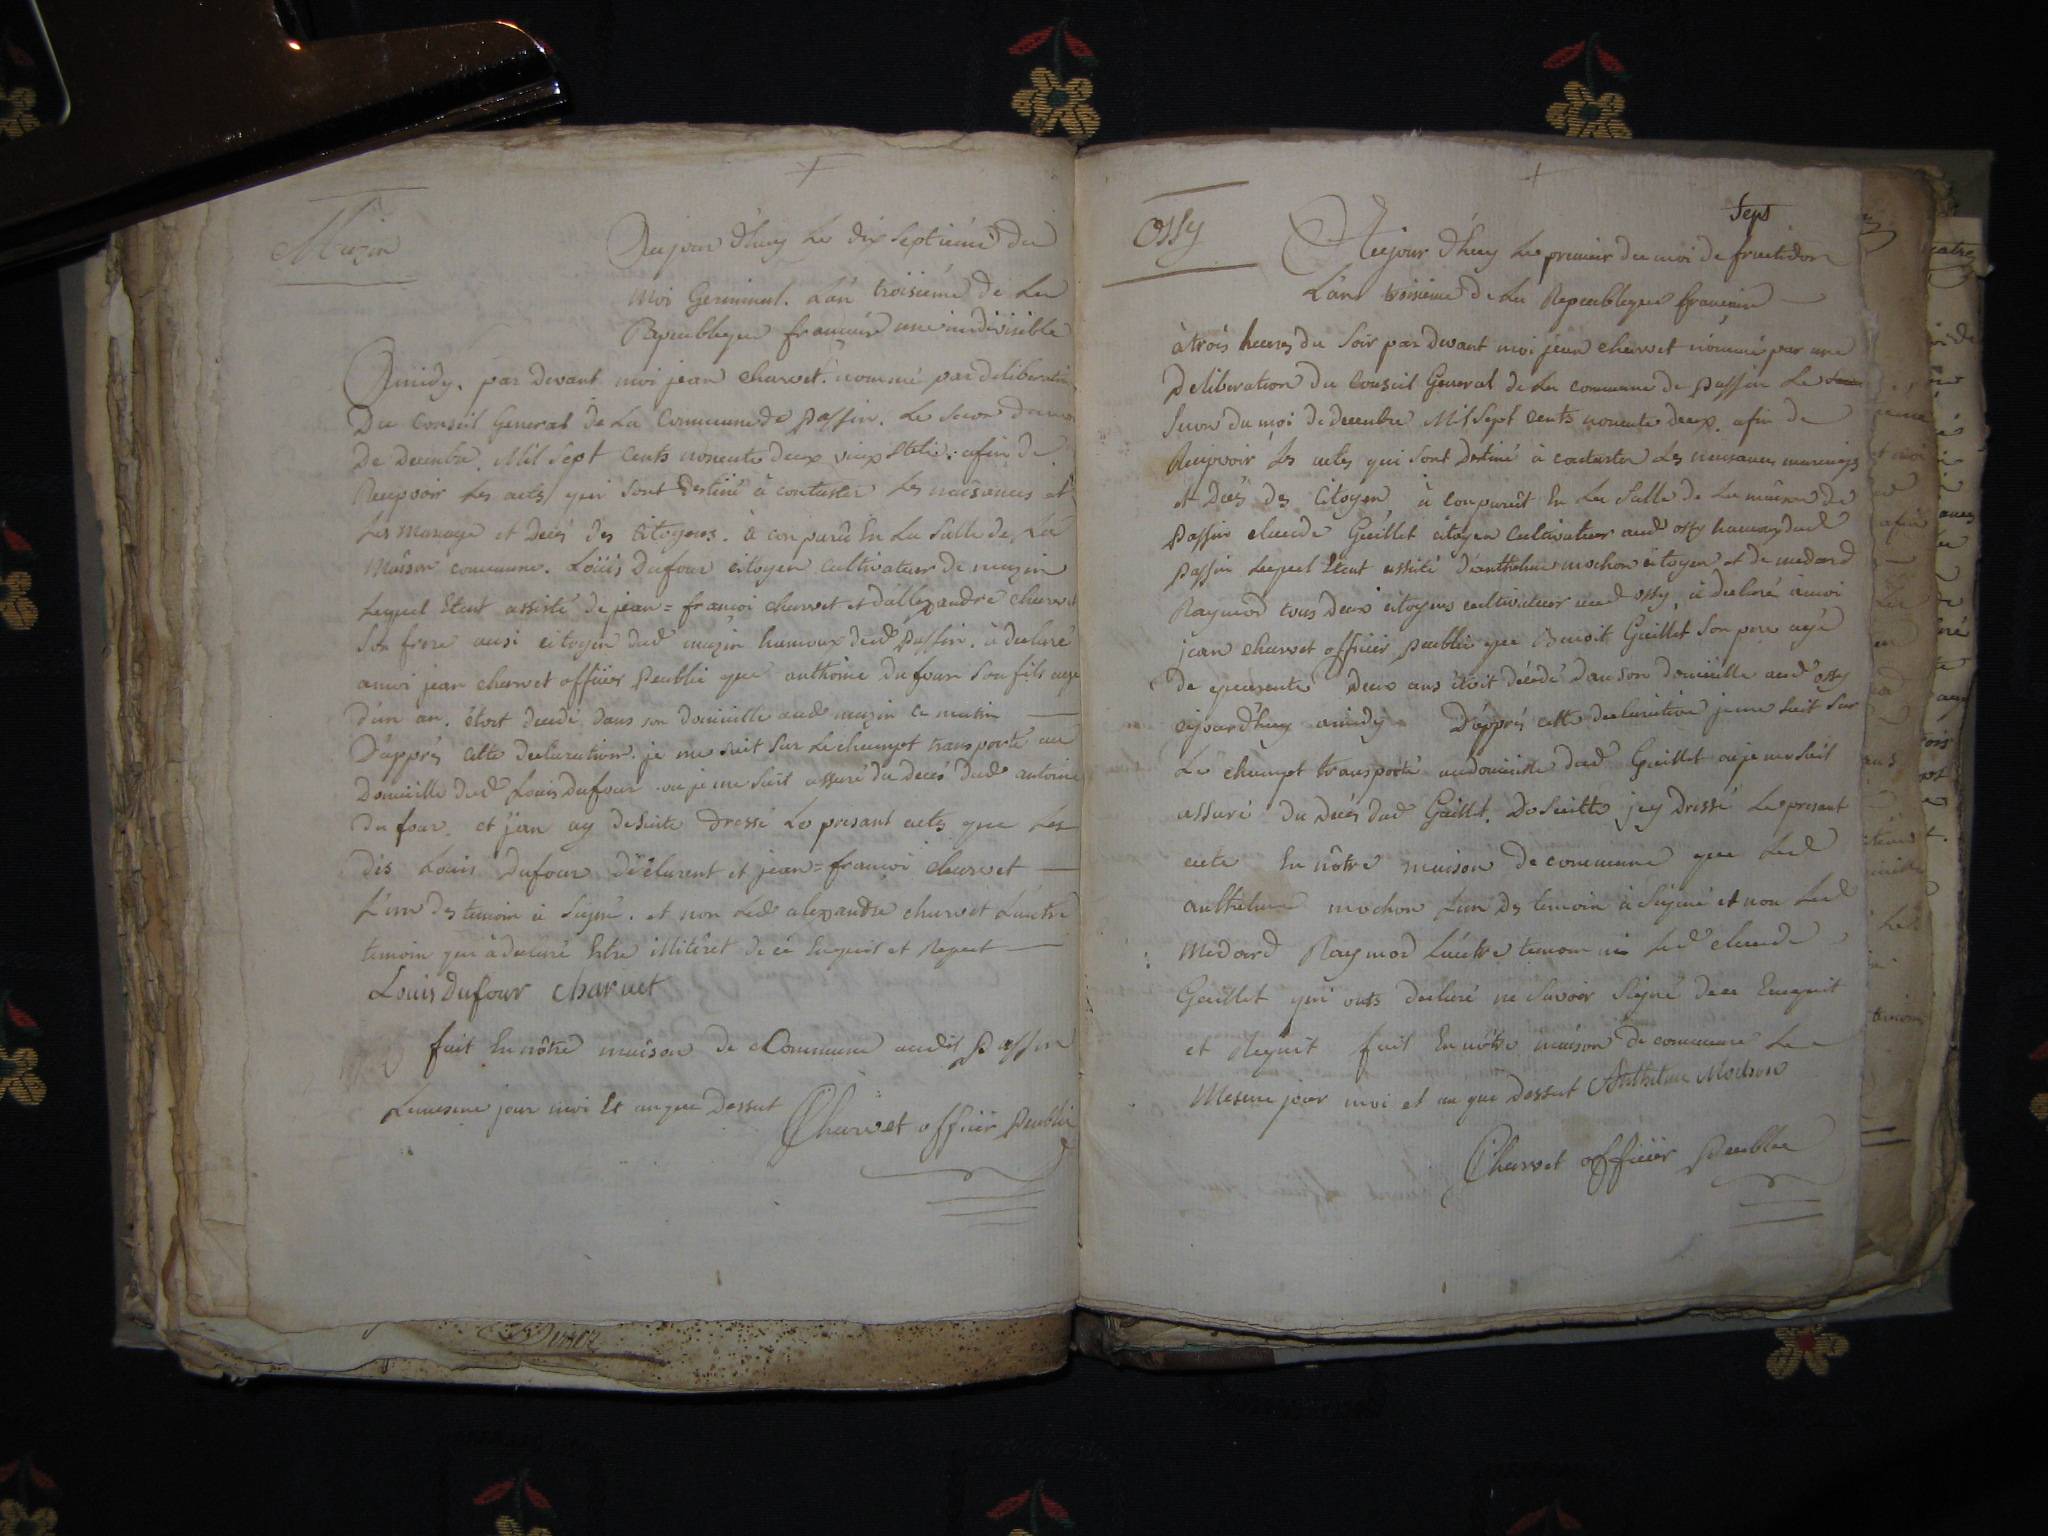 Muzin
Aujour d'huy le dix septieme du
moi Germinal. L'an troisieme de La
Republique francaise une indivisible
par devant moi jean charvet. nommé par deliberation
Du Conseil General de La Commune de passin. Le
De Decembre. Mil sept cents nonente deux vieux stile. afin de
Recepvoir Les actes qui sont destiné à constater Les naissances et
Les Mariage et Decès des Citoyens. à comparu En La Salle de La
Maison commune. Loüis Dufour citoyen Cultivateur de muzin
Lequel Etant assisté de jean=francoi charvet et d'allexandre charvet
son frere ausi citoyen dud muzin hamaux dud passin. à declaré
amoi jean charvet officier Peublic que anthoine dufour son fils agé
d'un an. étoit decedé dans son domicille aud muzin ce matin
D'apprés cette declaration. je me suit sur Le champt transporté au
Domicille dud Louis Dufour. ou je me suit assuré du decès dud antoine
du four. et j'an ay desuite dressé Le presant acte que Les
dis Louis Dufour déclarent et jean=francoi charvet
L'un des temoin à signé. et non Led alexandre charvet Lautre
temoin qui à declaré Estre illitéret de cé Enquis et Requit
Louis Dufour charvet
fait En nôtre maison de Commune audit Passin
Lemesme jour moi Et an que Dessut
Charvet officier Peublic
Dumor
Sept
Ossy
Aujour d'huy Le premier du moi de fructidor
L'an troisieme de La Republique francaise
à trois heures du soir par devant moi jean charvet nommé par une
Deliberation du Conseil General de La commune de passin Le
du moi de decembre Mil Sept cents nonente deux. afin de
Recepvoir Les actes qui sont Destiné à constater Les naissances mariages
et Décès des Citoyen à comparêt En La Salle de La maison de
passin claude Guillet citoyen cultivateur aud ossy hamaux dud
passin Lequel Etant assisté d'anthelme mochon citoyen et de medard
Raymod tous Deux citoyens cultivateur aud ossy à declaré à moi
jean charvet officier peublic que Benoit Guillet son pere agé
de quarente Deux ans étoit décédé dans son domicille aud ossy
D'apprés cette declaration je me suit sur
Le champt transporté au domicille dud Guillet ou je me suit
assuré du Decès dud Guillet. De suitte j'ey Dressé Le presant
acte En nôtre maison de commune que Led
anthelme mochon L'un Ds temoin à signé et non Led
Medard Raymod Lautre temoin ni Led claude
Guillet qui onts declaré ne savoir signé de ce Enquit
et Requit fait En nôtre maison de commune Le
Mesme jour moi et an que Dessut Anthelme Mochon
Charvet officier Peublic